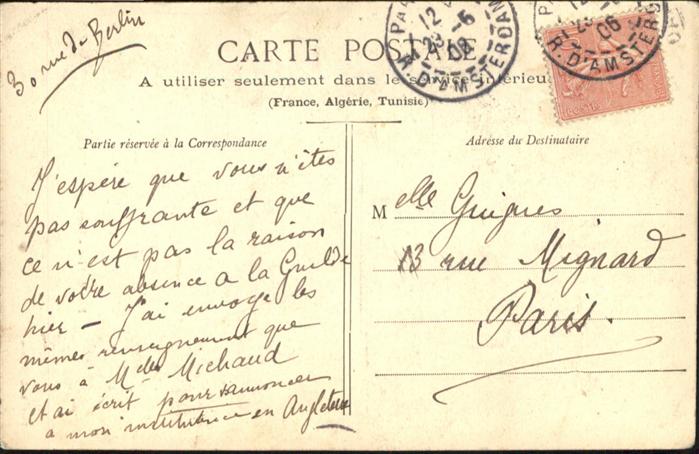 30 rue de Berlin
PA
12
6
06
R. D'AMSTERDAM
P
12
06
R. D'AMSTERD
CARTE POSTALE
A utiliser seulement dans le service intérieur
(France, Algérie, Tunisie)
Partie réservée à la Correspondance
J'espère que vous n'êtes
pas souffrante et que
ce n'est pas la raison
de votre absence a la Guilde
hier - J'ai envoyé les
mêmes renseignement que
vous à Mdes Michaud
et ai écrit pour annoncer
a mon institutrice en Angleterre
Adresse du Destinataire
Melle Guigues
13 rue Mignard
Paris.